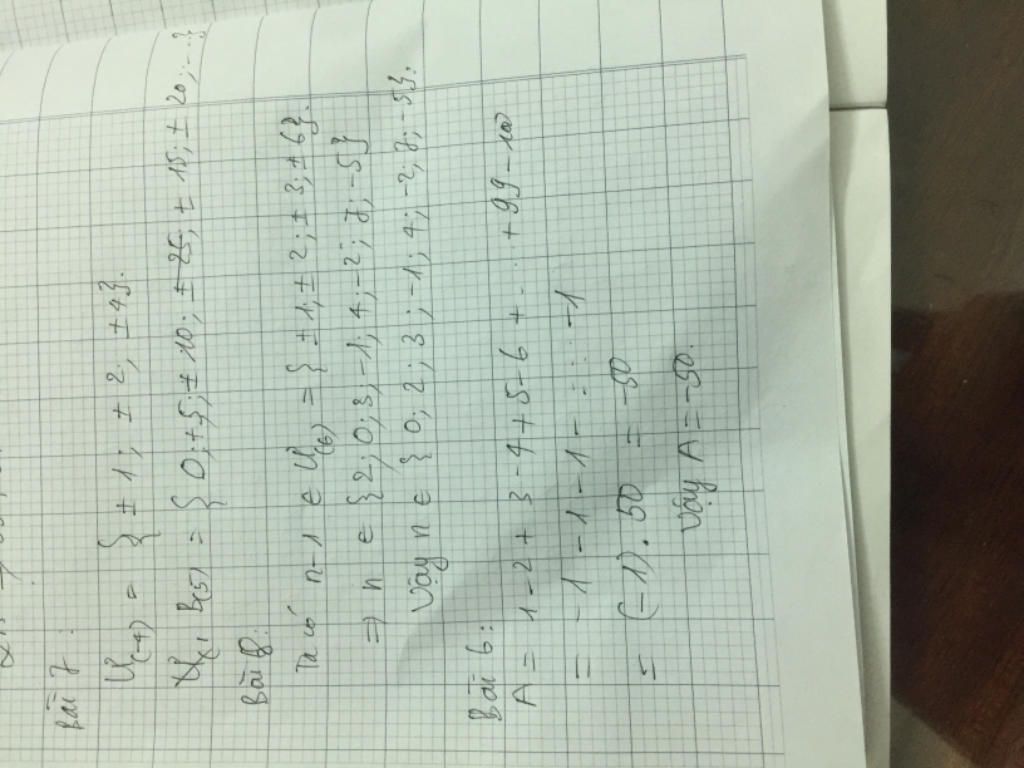 Bài 7:
Ư(-4) = { ± 1; ± 2; ± 4}.
B(5) = { 0; ±5; ± 10; ± 15; ± 20; ...}
Bài 8:
Ta có n-1 ∈ Ư(6) = { ± 1; ± 2; ± 3; ± 6}.
⇒ n ∈ { 2; 0; 3; -1; 4; -2; 7; -5}
Vậy n ∈ { 0; 2; 3; -1; 4; -2; 7; -5}.
Bài 6:
A = 1 - 2 + 3 - 4 + 5 - 6 + ... + 99 - 100
= -1 - 1 - 1 - 1 - ... - 1
= (-1) . 50 = -50
Vậy A = -50.